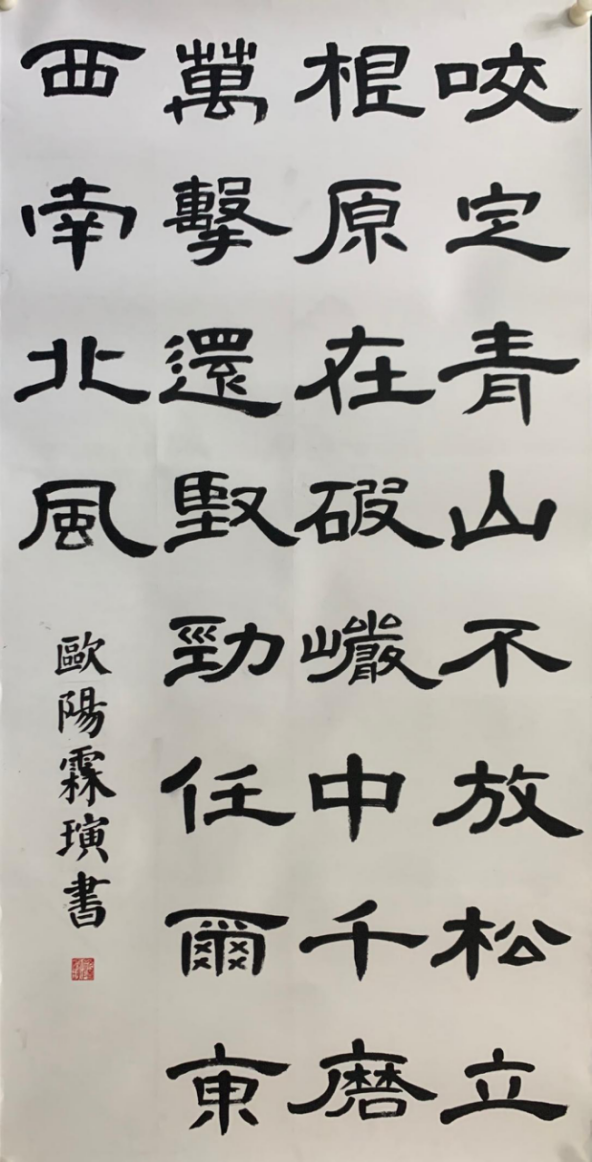 咬定青山不放松立
根原在破巗中千磨
萬擊還堅勁任爾東
西南北風
歐陽霖璜書